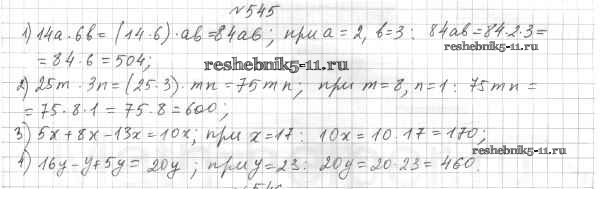 №545
1) 14a · 6b = (14·6)·ab = 84ab; при a = 2, b = 3: 84ab = 84·2·3 =
= 84·6 = 504;
reshebnik5-11.ru
reshebnik5-11.ru
2) 25m · 3n = (25·3)·mn = 75mn; при m = 8, n = 1: 75mn =
= 75·8·1 = 75·8 = 600;
3) 5x + 8x - 13x = 10x; при x = 17: 10x = 10·17 = 170;
reshebnik5-11.ru
4) 16y - y + 5y = 20y; при y = 23: 20y = 20·23 = 460.